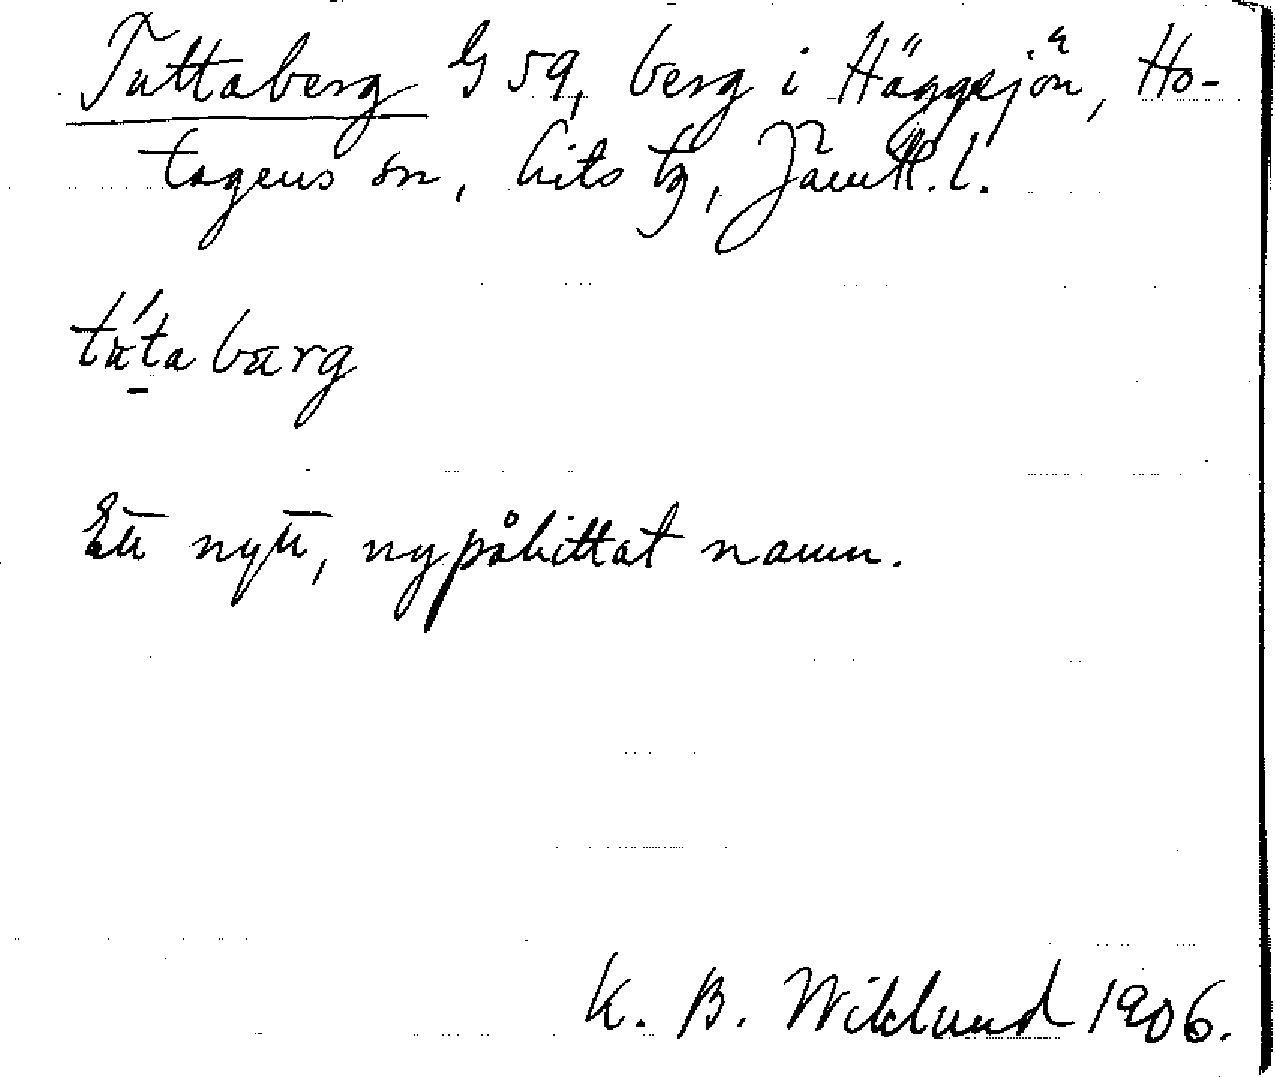 Tattaberg G 59, berg i Häggsjön, Ho-
tagens sn, Lits tg, Jämtl. l.
táta bærg
Ett nytt, nypåhittat namn.
K. B. Wiklund 1906.